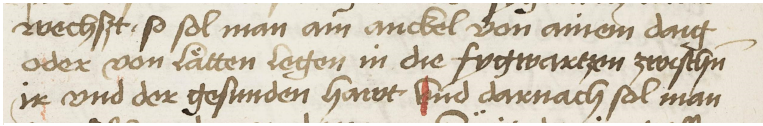 wechszt · so sol man ain anckel von ainem daig
oder von låtten legen in die fygwartzen zwischn̄
ir vnd der gesunden hawt vnd darnach sol man